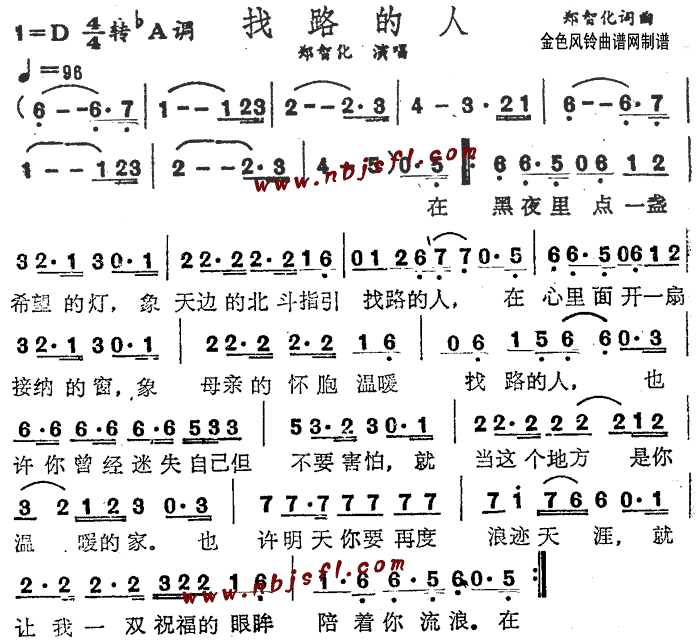 找路的人
1=D 4/4 转bA调
郑智化词曲
郑智化 演唱
金色风铃曲谱网制谱
♩=96
(6 - - 6·7 | 1 - - 123 | 2 - - 2·3 | 4 - 3·21 | 6 - - 6·7 |
1 - - 123 | 2 - - 2·3 | 4 - 5) 0·5 ‖: 6 6·5 06 1 2
www.nbjsfl.com
在 黑夜里 点一盏
32·1 30·1 | 22·22·216 | 01267 70·5 | 66·50612
希望的灯，象 天边的北斗指引 找路的人，在 心里面开一扇
32·1 30·1 | 22·2 2·2 16 | 06 156 60·3
接纳的窗，象 母亲的怀胞温暖 找路的人，也
6·6 6·6 6·6 533 | 53·230·1 | 22·22 2 212
许你曾经迷失自己但 不要害怕，就 当这个地方 是你
3 2 123 0·3 | 77·777 77 | 7i 76 60·1
温暖的家。也 许明天你要再度 浪迹天涯，就
2·2 2·2 322 16 | 1·6 6·5 6 0·5 :‖
www.nbjsfl.com
让我一双祝福的眼眸 陪着你流浪。在